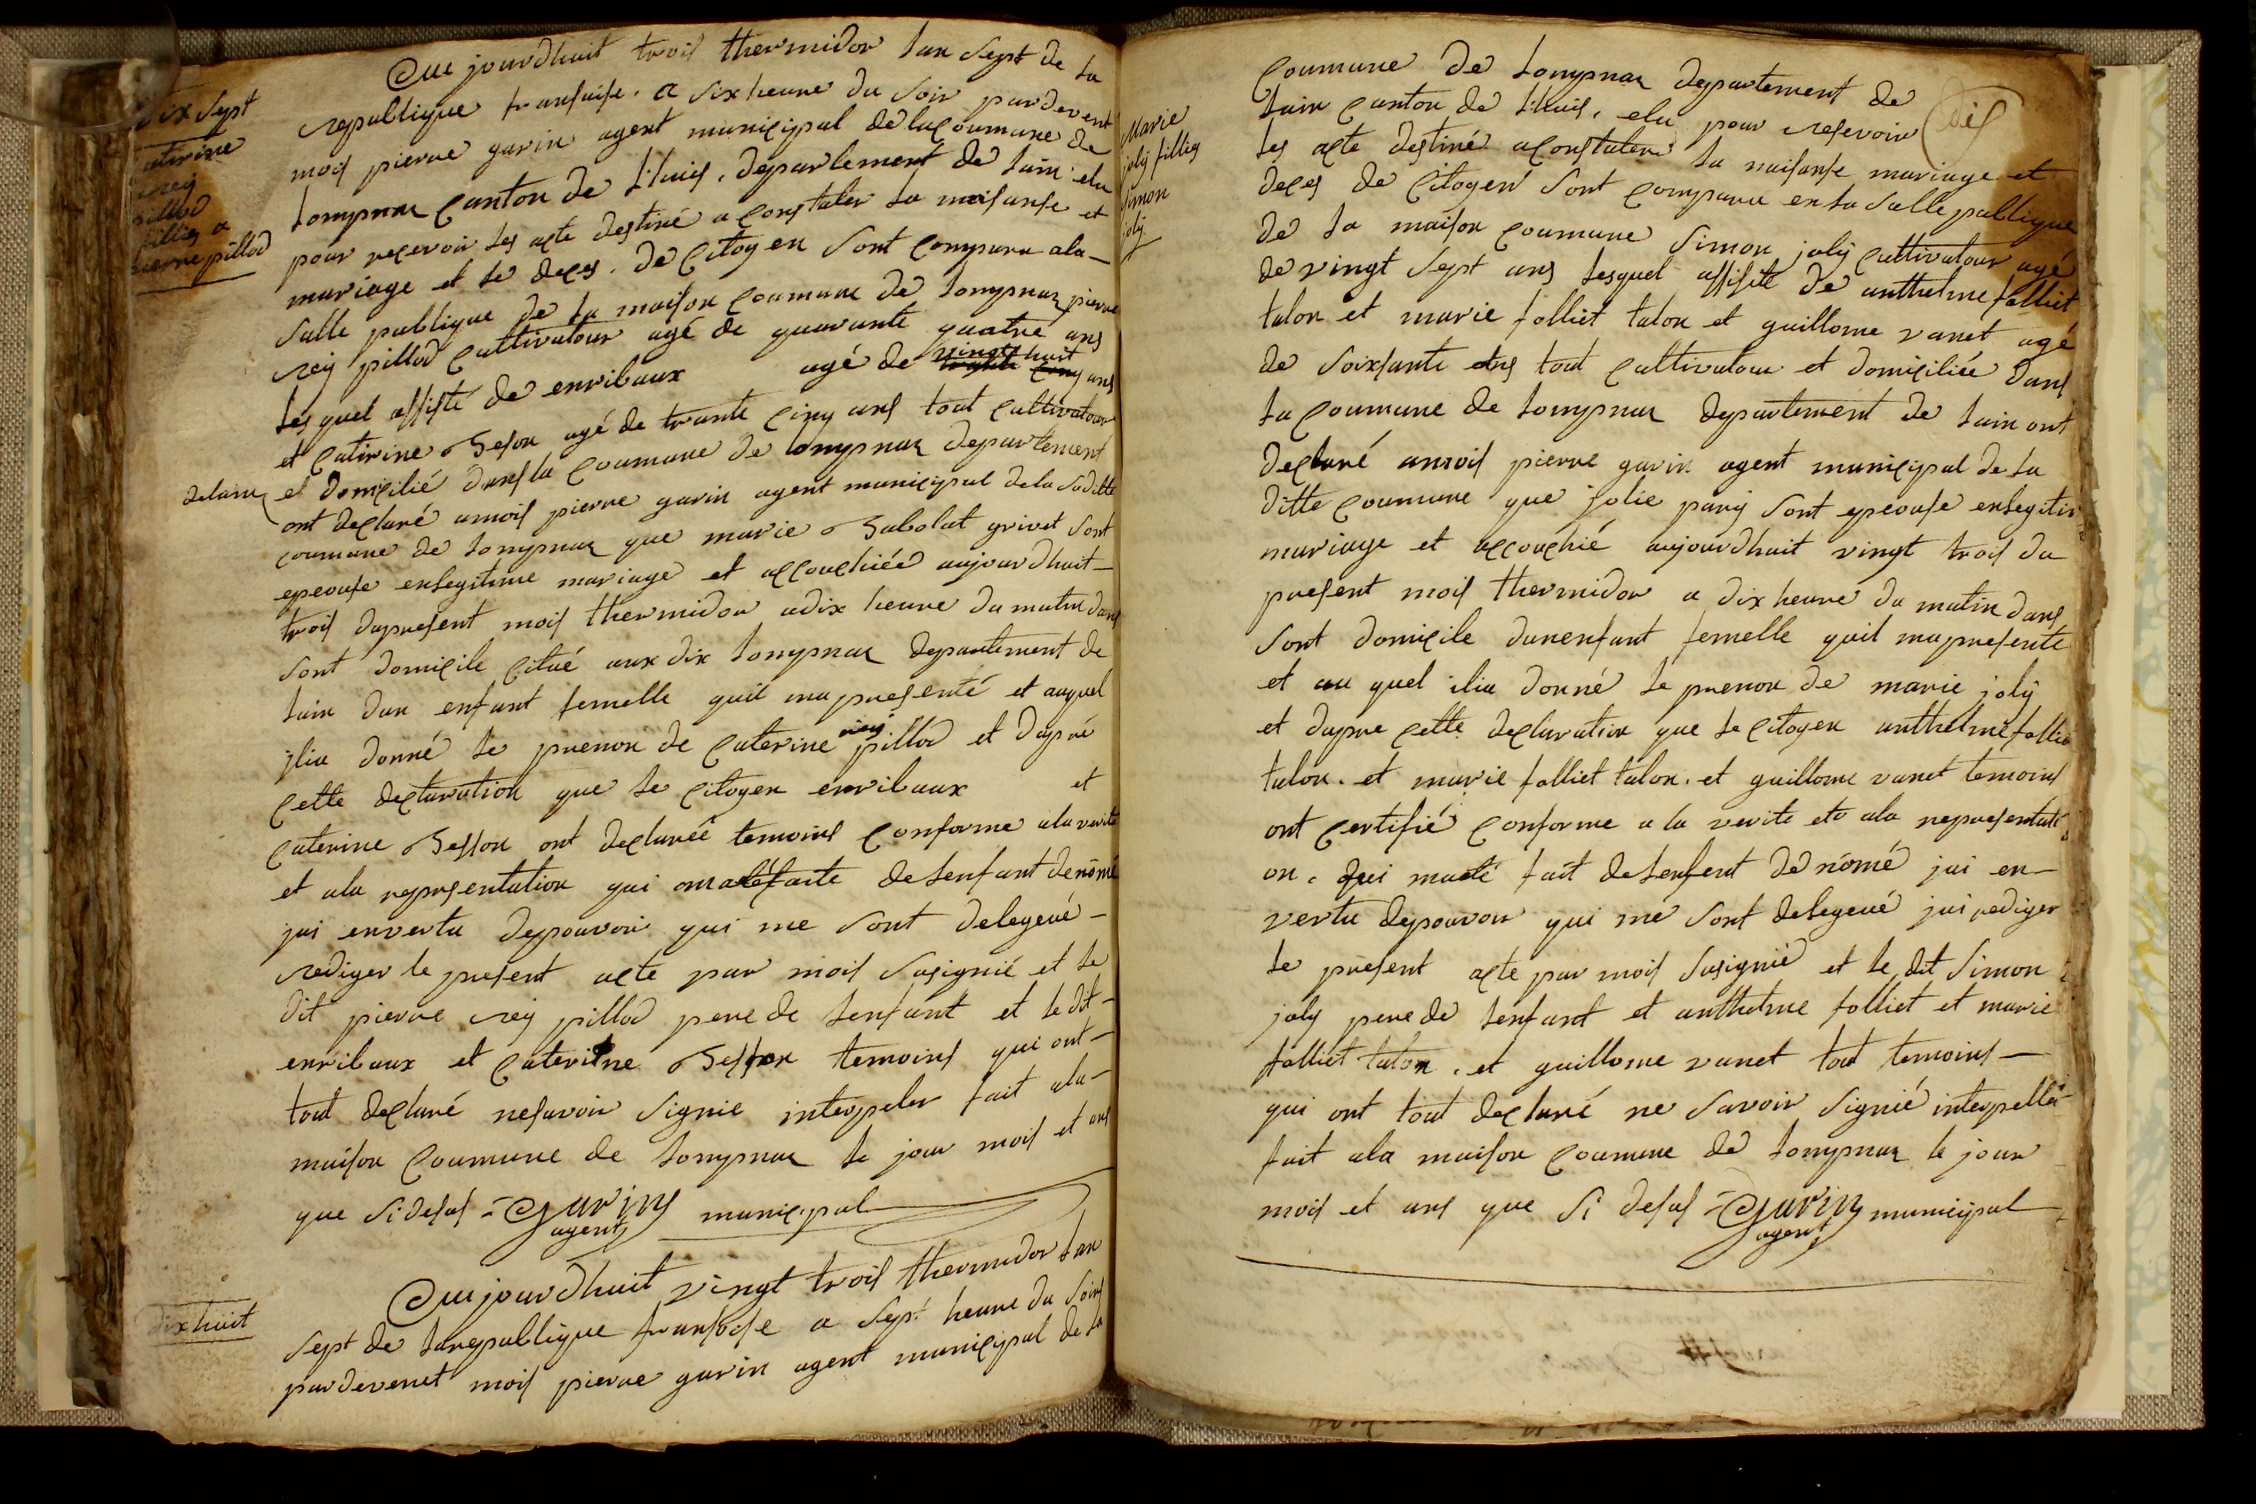 dix sept
caterine
reÿ
pillod
fillies a
pierre pillod
Aujourdhuit trois thermidor lan sept de la
republique fransaise. a six heure du soir pardevent
mois pierre garin agent municipal de la Coumune de
lompnaz Canton de lhuis. departement de lain elu
pour recevoir les acte destiné a Constater la naisanse et
mariage et le deces. de Citoyen sont Comparu ala–
salle publique de la maison Coumune de lompnaz pierre
reÿ pillod Cultivatour agé de quarante quatre ans
lesquel assisté de enribaux agé de vingt huit ans
et Catirine Beson agé de trante Cinq ans tout Cultivatour
et domicilié dans la Coumune de lompnaz departement
delain
ont declaré amois pierre garin agent municipal dela suditte
coumune de lompnaz que marie Babolat grivet sont
epeouse enlegitime mariage et accouchiée aujourdhuit–
trois dupresent mois thermidor adix heure du matin dans
sont domicile Citué aux dix lompnaz departement de
lain dun enfant femelle quil ma presenté et auquel
ilia donné le prenon de Caterine reÿ pillod et dapré
Cette declaration que le Citoyen enribaux et
Caterine Besson ont declareé temoins Conforme ala verité
et ala represntation qui ma eté faite de lenfant denomé
jai envertu depouvoir qui me sont delegeué–
rediger le present acte par mois susignié et le
dit pierre reÿ pillod pere de lenfant et le dit–
enribaux et Caterine Besson temoins qui ont–
tout declaré nesavoir signie interpeler fait ala–
maison Coumune de lompnaz le jour mois et ans
que si desus = Garin
agent municipal
dix huit
Aujourdhuit vingt trois thermidor lan
sept de larepublique fransoise a sept heure du soir
pardevenet mois pierre garin agent municipal de la
Marie
jolÿ fillies
simon
jolÿ
dis
Coumune de lompnaz departement de
lain Canton de lhuis. elu pour resevoir
les acte destiné aConstater la naisanse mariage et
deces de Citoyen sont Comparu en la salle publique
de la maison Coumune simon jolÿ Cultivatour agé
de vingt sept ans lesquel assisté de anthelme folliet
talon et marie folliet talon et guillome vanet agé
de soixsante ans tout Cultivatour et domiciliée dans
la Coumune de lompnaz departement de lain ont
declaré amois pierre garin agent municipal de la
ditte Coumune que jolie parÿ sont epeouse enlegitim
mariage et accouchié aujourdhuit vingt trois du
present mois thermidor a dix heure du matin dans
sont domicile dunenfant femelle quil mapresente
et au quel ilia donné le prenon de marie jolÿ
et dapre Cette declaration que le Citoyen anthelme folliet
talon. et marie folliet talon. et guillome vanet temoins
ont Certifié Conforme a la verite et ala representati
on. qui maeté fait delenfent denomé jai en–
vertu depouvoir qui me sont delegeué jai rediger
le present acte par mois susignié et le dit simon
jolÿ pere de lenfant et anthelme folliet et marie
folliet talon. et guillome vanet tout temoins–
qui ont tout declaré ne savoir signié interpellé
fait ala maison Coumune de lompnaz le jour
mois et ans que si desus = Garin municipal
agent